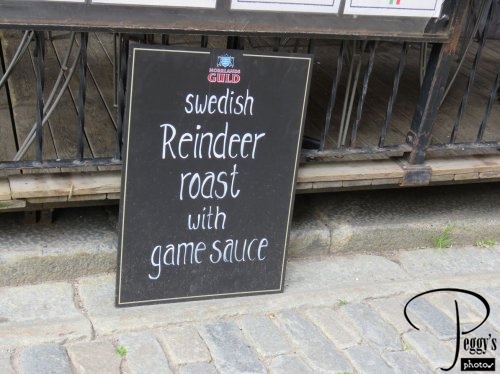 NORRLANDS
GULD
swedish
Reindeer
roast
with
game sauce
Peggy's
photos